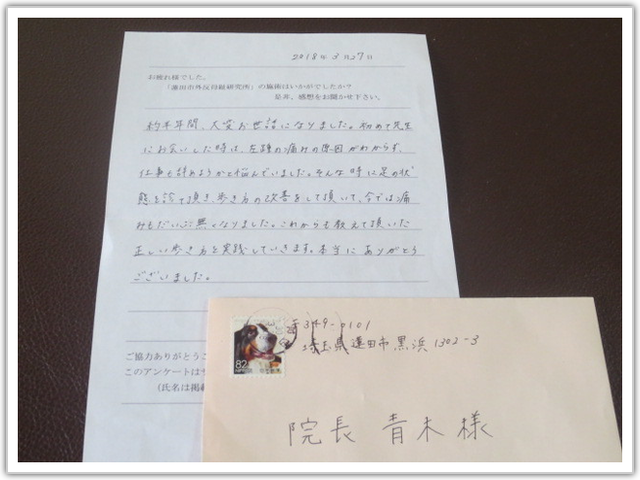 2018年3月27日
お疲れ様でした。
「蓮田市外反母趾研究所」の施術はいかがでしたか？
是非、感想をお聞かせ下さい。
約半年間、大変お世話になりました。初めて先生
にお会いした時は、左踵の痛みの原因がわからず、
仕事も辞めようかと悩んでいました。そんな時に足の状
態を診て頂き、歩き方の改善をして頂いて、今では痛
みもだいぶ無くなりました。これからも教えて頂いた
正しい歩き方を実践していきます。本当にありがとう
ございました。
ご協力ありがとうご
このアンケートは
(氏名は掲
〒349-0101
埼玉県蓮田市黒浜1302-3
82
NIPPON
日本郵便
院長 青木様